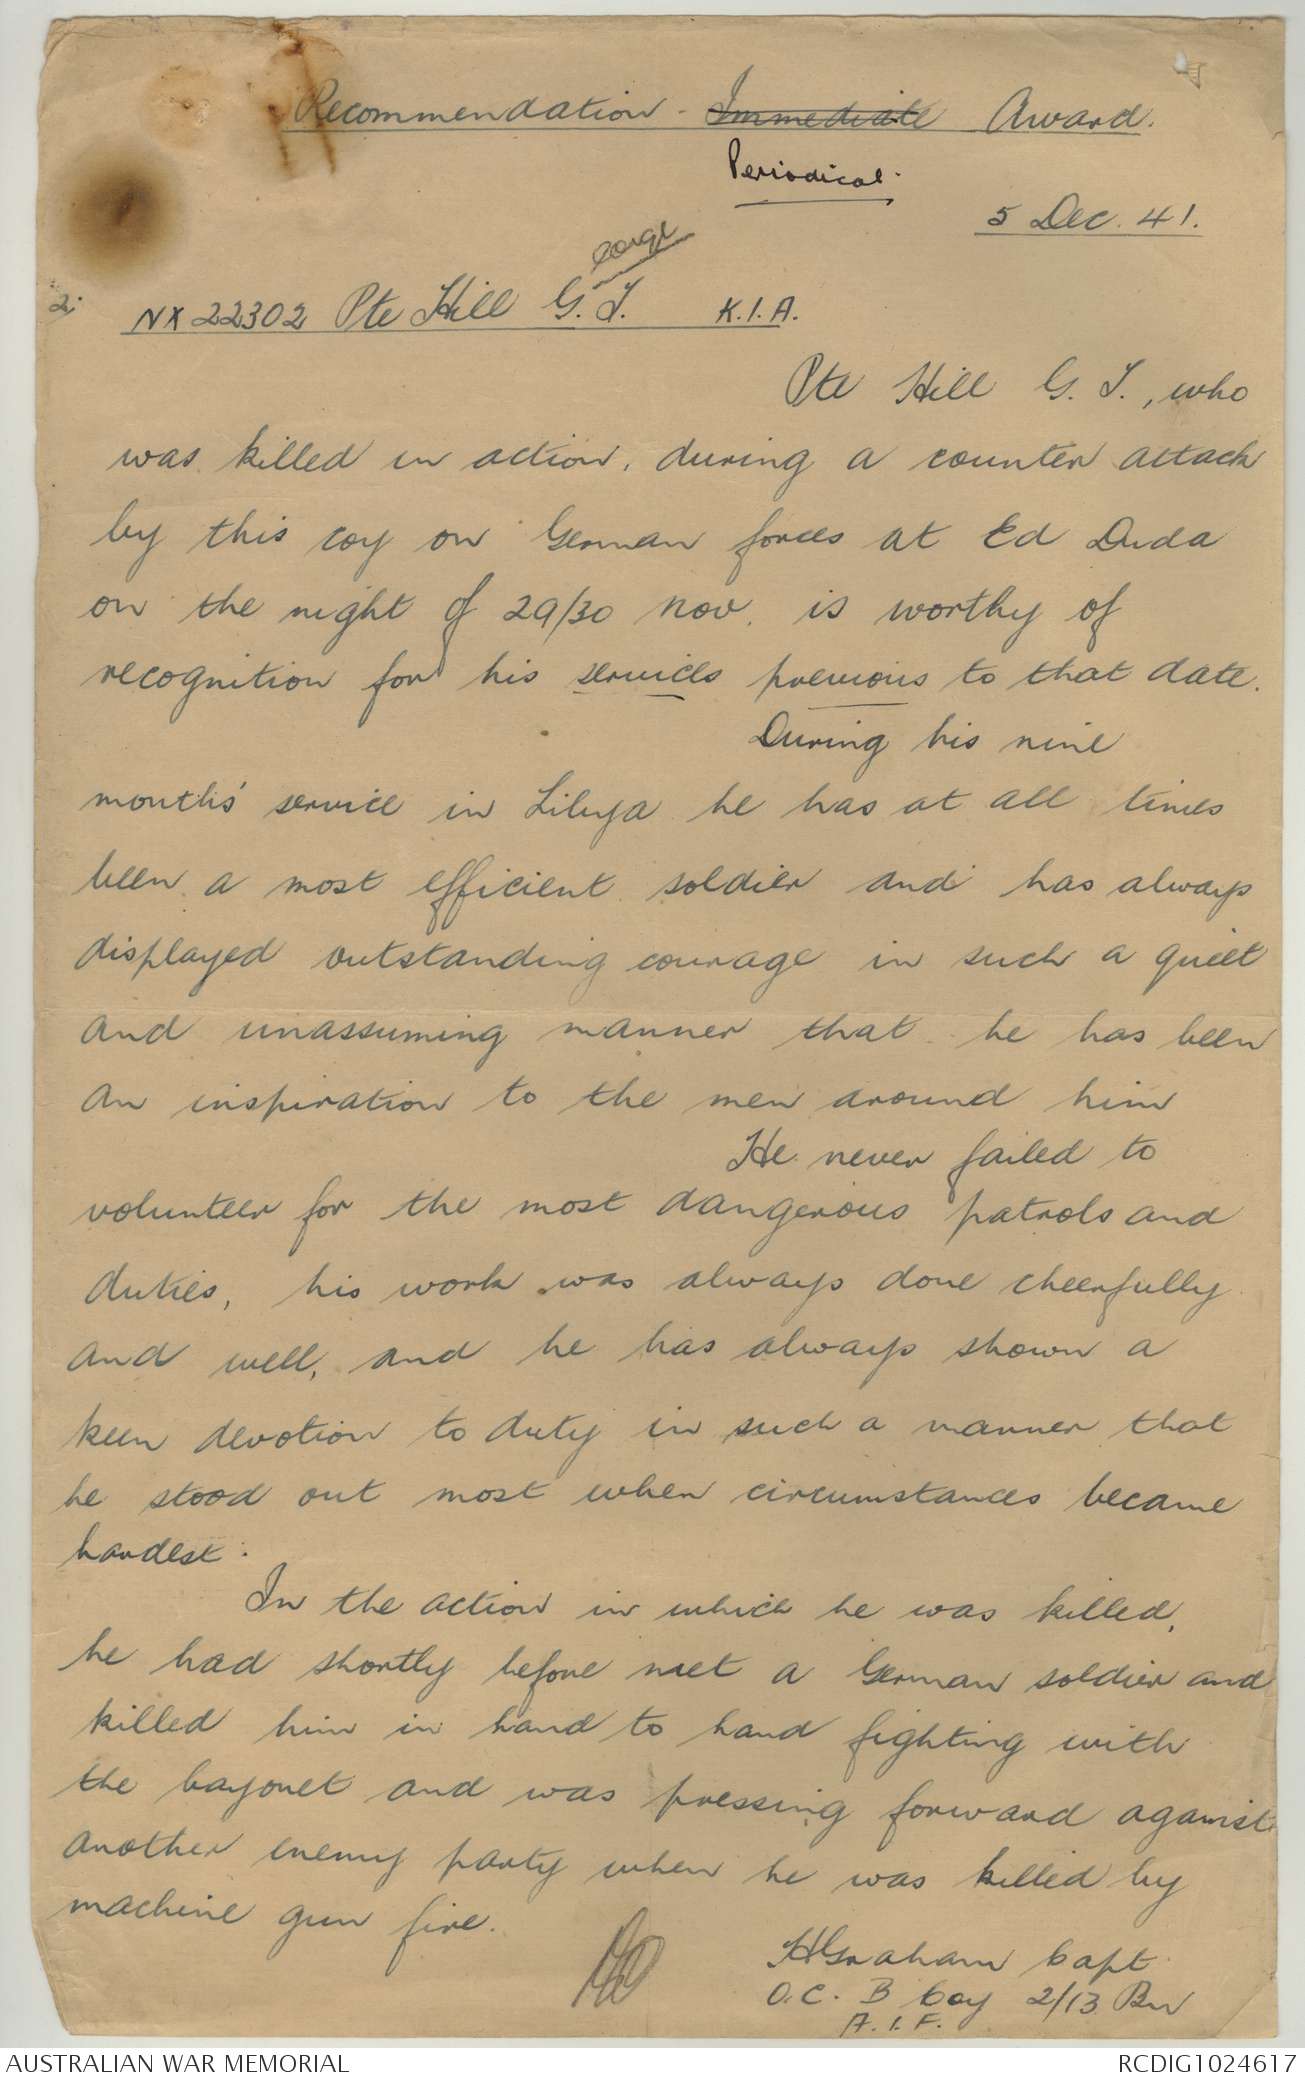 Recommendation - Immediate Award.
Periodical.
5 Dec. 41.
eorge
2;
NX22302 Pte Hill G. T. K.I.A.
Pte Hill G. T., who
was killed in action, during a counter attack
by this coy on German forces at Ed Duda
on the night of 29/30 Nov. is worthy of
recognition for his services previous to that date.
During his nine
months' service in Libya he has at all times
been a most efficient soldier and has always
displayed outstanding courage in such a quiet
and unassuming manner that he has been
an inspiration to the men around him
He never failed to
volunteer for the most dangerous patrols and
duties, his work was always done cheerfully
and well, and he has always shown a
keen devotion to duty in such a manner that
he stood out most when circumstances became
hardest.
In the action in which he was killed,
he had shortly before met a German soldier and
killed him in hand to hand fighting with
the bayonet and was pressing forward against
another enemy party when he was killed by
machine gun fire.
HGraham Capt
O.C. B Coy 2/13 Bn
A.I.F.
AUSTRALIAN WAR MEMORIAL
RCDIG1024617